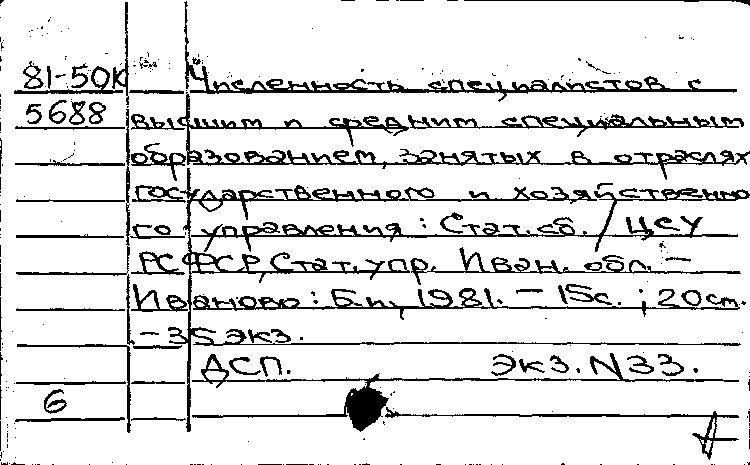 81-50к Численность специалистов с
5688 высшим и средним специальным
образованием, занятых в отраслях
государственного и хозяйственно
го управления : Стат. сб. / ЦСУ
РСФСР, Стат. упр. Иван. обл. –
Иваново : Б.и., 1981. – 15с. ; 20см.
– 35 экз.
ДСП. Экз. N33.
6